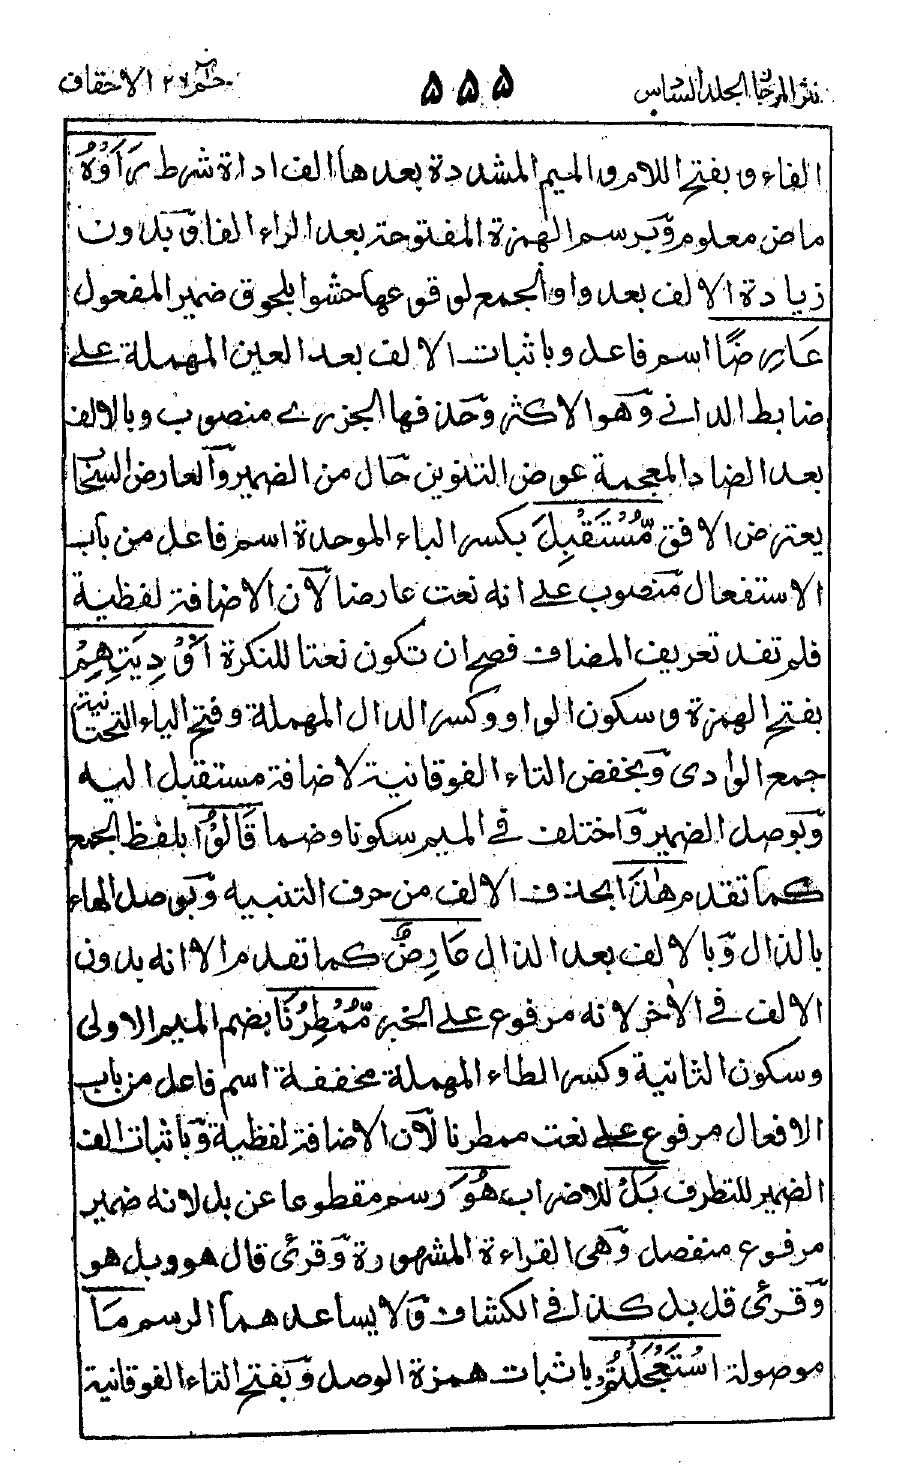 نثر المرجان الجلد السادس ۵۵۵ حٰمٓ ٢٦ الاحقاف
الفاء و بفتح اللام و الميم المشددة بعدها الف اداة شرط رَاَوْهُ
ماض معلوم و برسم الهمزة المفتوحة بعد الراء الفا و بدون
زيادة الالف بعد واو الجمع لوقوعها حشوا بلحوق ضمير المفعول
عَارِضًا اسم فاعل و باثبات الالف بعد العين المهملة على
ضابط الدانى و هو الاكثر و حذفها الجزرى منصوب و بالالف
بعد الضاد المعجمة عوض التنوين حال من الضمير و العارض السحاب
يعترض الافق مُّسْتَقْبِلَ بكسر الباء الموحدة اسم فاعل من باب
الاستفعال منصوب على انه نعت عارضا لان الاضافة لفظية
فلم تفد تعريف المضاف فصح ان تكون نعتا للنكرة اَوْدِيَتِهِمْ
بفتح الهمزة و سكون الواو و كسر الدال المهملة و فتح الياء التحتانية
جمع الوادى و بخفض التاء الفوقانية لاضافة مستقبل اليه
و بوصل الضمير و اختلف فى الميم سكونا و ضما قَالُوْا بلفظ الجمع
كما تقدم هٰذَا بحذف الالف من حرف التنبيه و بوصل الهاء
بالذال و بالالف بعد الذال عَارِضٌ كما تقدم الا انه بدون
الالف فى الاٰخر لانه مرفوع على الخبر مُّمْطِرُنَا بضم الميم الاولى
و سكون الثانية و كسر الطاء المهملة مخففة اسم فاعل من باب
الافعال مرفوع على نعت ممطرنا لان الاضافة لفظية و باثبات الف
الضمير للتطرف بَلْ للاضراب هُوَ رسم مقطوعا عن بل لانه ضمير
مرفوع منفصل و هى القراءة المشهورة و قرئ قال هو و بل هو
و قرئ قل بل كذا فى الكشاف و لا يساعدهما الرسم مَا
موصولة اسْتَعْجَلْتُمْ باثبات همزة الوصل و بفتح التاء الفوقانية